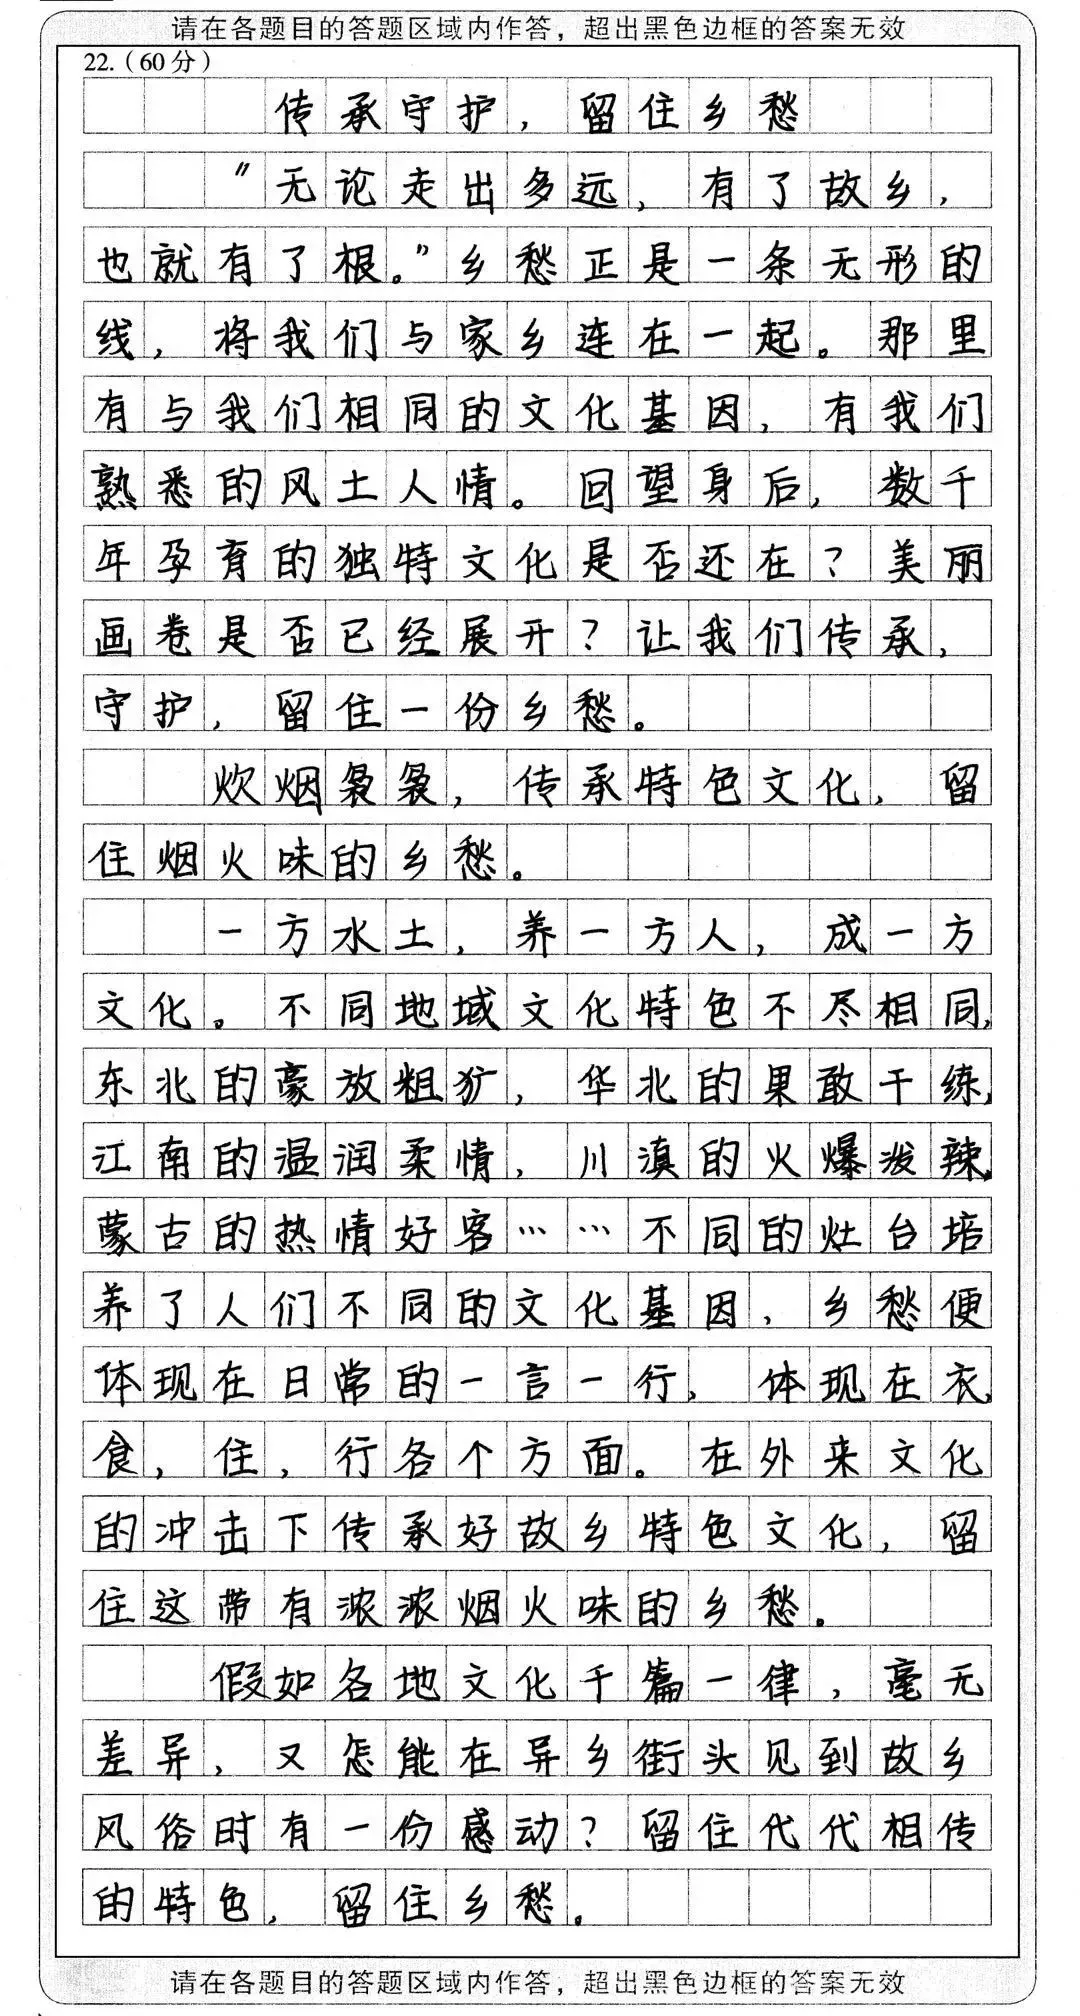 请在各题目的答题区域内作答，超出黑色边框的答案无效
22.（60分）
传承守护，留住乡愁
“无论走出多远，有了故乡，
也就有了根。”乡愁正是一条无形的
线，将我们与家乡连在一起。那里
有与我们相同的文化基因，有我们
熟悉的风土人情。回望身后，数千
年孕育的独特文化是否还在？美丽
画卷是否已经展开？让我们传承，
守护，留住一份乡愁。
炊烟袅袅，传承特色文化，留
住烟火味的乡愁。
一方水土，养一方人，成一方
文化。不同地域文化特色不尽相同，
东北的豪放粗犷，华北的果敢干练，
江南的温润柔情，川滇的火爆泼辣，
蒙古的热情好客……不同的灶台培
养了人们不同的文化基因，乡愁便
体现在日常的一言一行，体现在衣，
食，住，行各个方面。在外来文化
的冲击下传承好故乡特色文化，留
住这带有浓浓烟火味的乡愁。
假如各地文化千篇一律，毫无
差异，又怎能在异乡街头见到故乡
风俗时有一份感动？留住代代相传
的特色，留住乡愁。
请在各题目的答题区域内作答，超出黑色边框的答案无效